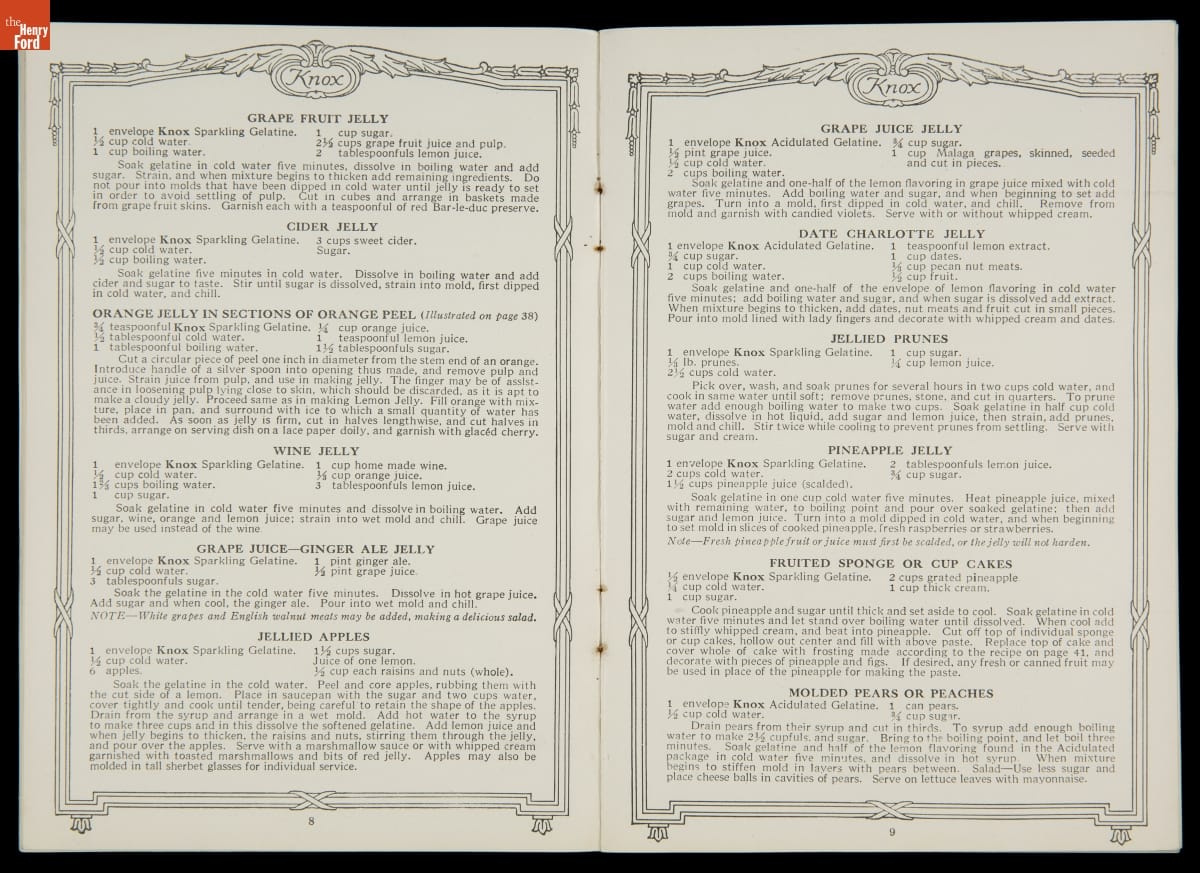 the
Henry
Ford
Knox
GRAPE FRUIT JELLY
1 envelope Knox Sparkling Gelatine. 1 cup sugar.
½ cup cold water. 2½ cups grape fruit juice and pulp.
1 cup boiling water. 2 tablespoonfuls lemon juice.
Soak gelatine in cold water five minutes, dissolve in boiling water and add
sugar. Strain, and when mixture begins to thicken add remaining ingredients. Do
not pour into molds that have been dipped in cold water until jelly is ready to set
in order to avoid settling of pulp. Cut in cubes and arrange in baskets made
from grape fruit skins. Garnish each with a teaspoonful of red Bar-le-duc preserve.
CIDER JELLY
1 envelope Knox Sparkling Gelatine. 3 cups sweet cider.
½ cup cold water. Sugar.
½ cup boiling water.
Soak gelatine five minutes in cold water. Dissolve in boiling water and add
cider and sugar to taste. Stir until sugar is dissolved, strain into mold, first dipped
in cold water, and chill.
ORANGE JELLY IN SECTIONS OF ORANGE PEEL (Illustrated on page 38)
¾ teaspoonful Knox Sparkling Gelatine. ¼ cup orange juice.
½ tablespoonful cold water. 1 teaspoonful lemon juice.
1 tablespoonful boiling water. 1½ tablespoonfuls sugar.
Cut a circular piece of peel one inch in diameter from the stem end of an orange.
Introduce handle of a silver spoon into opening thus made, and remove pulp and
juice. Strain juice from pulp, and use in making jelly. The finger may be of assist-
ance in loosening pulp lying close to skin, which should be discarded, as it is apt to
make a cloudy jelly. Proceed same as in making Lemon Jelly. Fill orange with mix-
ture, place in pan, and surround with ice to which a small quantity of water has
been added. As soon as jelly is firm, cut in halves lengthwise, and cut halves in
thirds, arrange on serving dish on a lace paper doily, and garnish with glacéd cherry.
WINE JELLY
1 envelope Knox Sparkling Gelatine. 1 cup home made wine.
½ cup cold water. ⅓ cup orange juice.
1⅔ cups boiling water. 3 tablespoonfuls lemon juice.
1 cup sugar.
Soak gelatine in cold water five minutes and dissolve in boiling water. Add
sugar, wine, orange and lemon juice; strain into wet mold and chill. Grape juice
may be used instead of the wine
GRAPE JUICE—GINGER ALE JELLY
1 envelope Knox Sparkling Gelatine. 1 pint ginger ale.
½ cup cold water. ½ pint grape juice.
3 tablespoonfuls sugar.
Soak the gelatine in the cold water five minutes. Dissolve in hot grape juice.
Add sugar and when cool, the ginger ale. Pour into wet mold and chill.
NOTE—White grapes and English walnut meats may be added, making a delicious salad.
JELLIED APPLES
1 envelope Knox Sparkling Gelatine. 1½ cups sugar.
½ cup cold water. Juice of one lemon.
6 apples. ½ cup each raisins and nuts (whole).
Soak the gelatine in the cold water. Peel and core apples, rubbing them with
the cut side of a lemon. Place in saucepan with the sugar and two cups water,
cover tightly and cook until tender, being careful to retain the shape of the apples.
Drain from the syrup and arrange in a wet mold. Add hot water to the syrup
to make three cups and in this dissolve the softened gelatine. Add lemon juice and
when jelly begins to thicken, the raisins and nuts, stirring them through the jelly,
and pour over the apples. Serve with a marshmallow sauce or with whipped cream
garnished with toasted marshmallows and bits of red jelly. Apples may also be
molded in tall sherbet glasses for individual service.
8
Knox
GRAPE JUICE JELLY
1 envelope Knox Acidulated Gelatine. ¾ cup sugar.
½ pint grape juice. 1 cup Malaga grapes, skinned, seeded
½ cup cold water. and cut in pieces.
2 cups boiling water.
Soak gelatine and one-half of the lemon flavoring in grape juice mixed with cold
water five minutes. Add boiling water and sugar, and when beginning to set add
grapes. Turn into a mold, first dipped in cold water, and chill. Remove from
mold and garnish with candied violets. Serve with or without whipped cream.
DATE CHARLOTTE JELLY
1 envelope Knox Acidulated Gelatine. 1 teaspoonful lemon extract.
¾ cup sugar. 1 cup dates.
1 cup cold water. ½ cup pecan nut meats.
2 cups boiling water. ½ cup fruit.
Soak gelatine and one-half of the envelope of lemon flavoring in cold water
five minutes; add boiling water and sugar, and when sugar is dissolved add extract.
When mixture begins to thicken, add dates, nut meats and fruit cut in small pieces.
Pour into mold lined with lady fingers and decorate with whipped cream and dates.
JELLIED PRUNES
1 envelope Knox Sparkling Gelatine. 1 cup sugar.
⅓ lb. prunes. ¼ cup lemon juice.
2½ cups cold water.
Pick over, wash, and soak prunes for several hours in two cups cold water, and
cook in same water until soft; remove prunes, stone, and cut in quarters. To prune
water add enough boiling water to make two cups. Soak gelatine in half cup cold
water, dissolve in hot liquid, add sugar and lemon juice, then strain, add prunes,
mold and chill. Stir twice while cooling to prevent prunes from settling. Serve with
sugar and cream.
PINEAPPLE JELLY
1 envelope Knox Sparkling Gelatine. 2 tablespoonfuls lemon juice.
2 cups cold water. ¾ cup sugar.
1½ cups pineapple juice (scalded).
Soak gelatine in one cup cold water five minutes. Heat pineapple juice, mixed
with remaining water, to boiling point and pour over soaked gelatine; then add
sugar and lemon juice. Turn into a mold dipped in cold water, and when beginning
to set mold in slices of cooked pineapple, fresh raspberries or strawberries.
Note—Fresh pineapple fruit or juice must first be scalded, or the jelly will not harden.
FRUITED SPONGE OR CUP CAKES
½ envelope Knox Sparkling Gelatine. 2 cups grated pineapple
¼ cup cold water. 1 cup thick cream.
1 cup sugar.
Cook pineapple and sugar until thick and set aside to cool. Soak gelatine in cold
water five minutes and let stand over boiling water until dissolved. When cool add
to stiffly whipped cream, and beat into pineapple. Cut off top of individual sponge
or cup cakes, hollow out center and fill with above paste. Replace top of cake and
cover whole of cake with frosting made according to the recipe on page 41, and
decorate with pieces of pineapple and figs. If desired, any fresh or canned fruit may
be used in place of the pineapple for making the paste.
MOLDED PEARS OR PEACHES
1 envelope Knox Acidulated Gelatine. 1 can pears.
½ cup cold water. ¾ cup sugar.
Drain pears from their syrup and cut in thirds. To syrup add enough boiling
water to make 2½ cupfuls, and sugar. Bring to the boiling point, and let boil three
minutes. Soak gelatine and half of the lemon flavoring found in the Acidulated
package in cold water five minutes, and dissolve in hot syrup. When mixture
begins to stiffen mold in layers with pears between. Salad—Use less sugar and
place cheese balls in cavities of pears. Serve on lettuce leaves with mayonnaise.
9